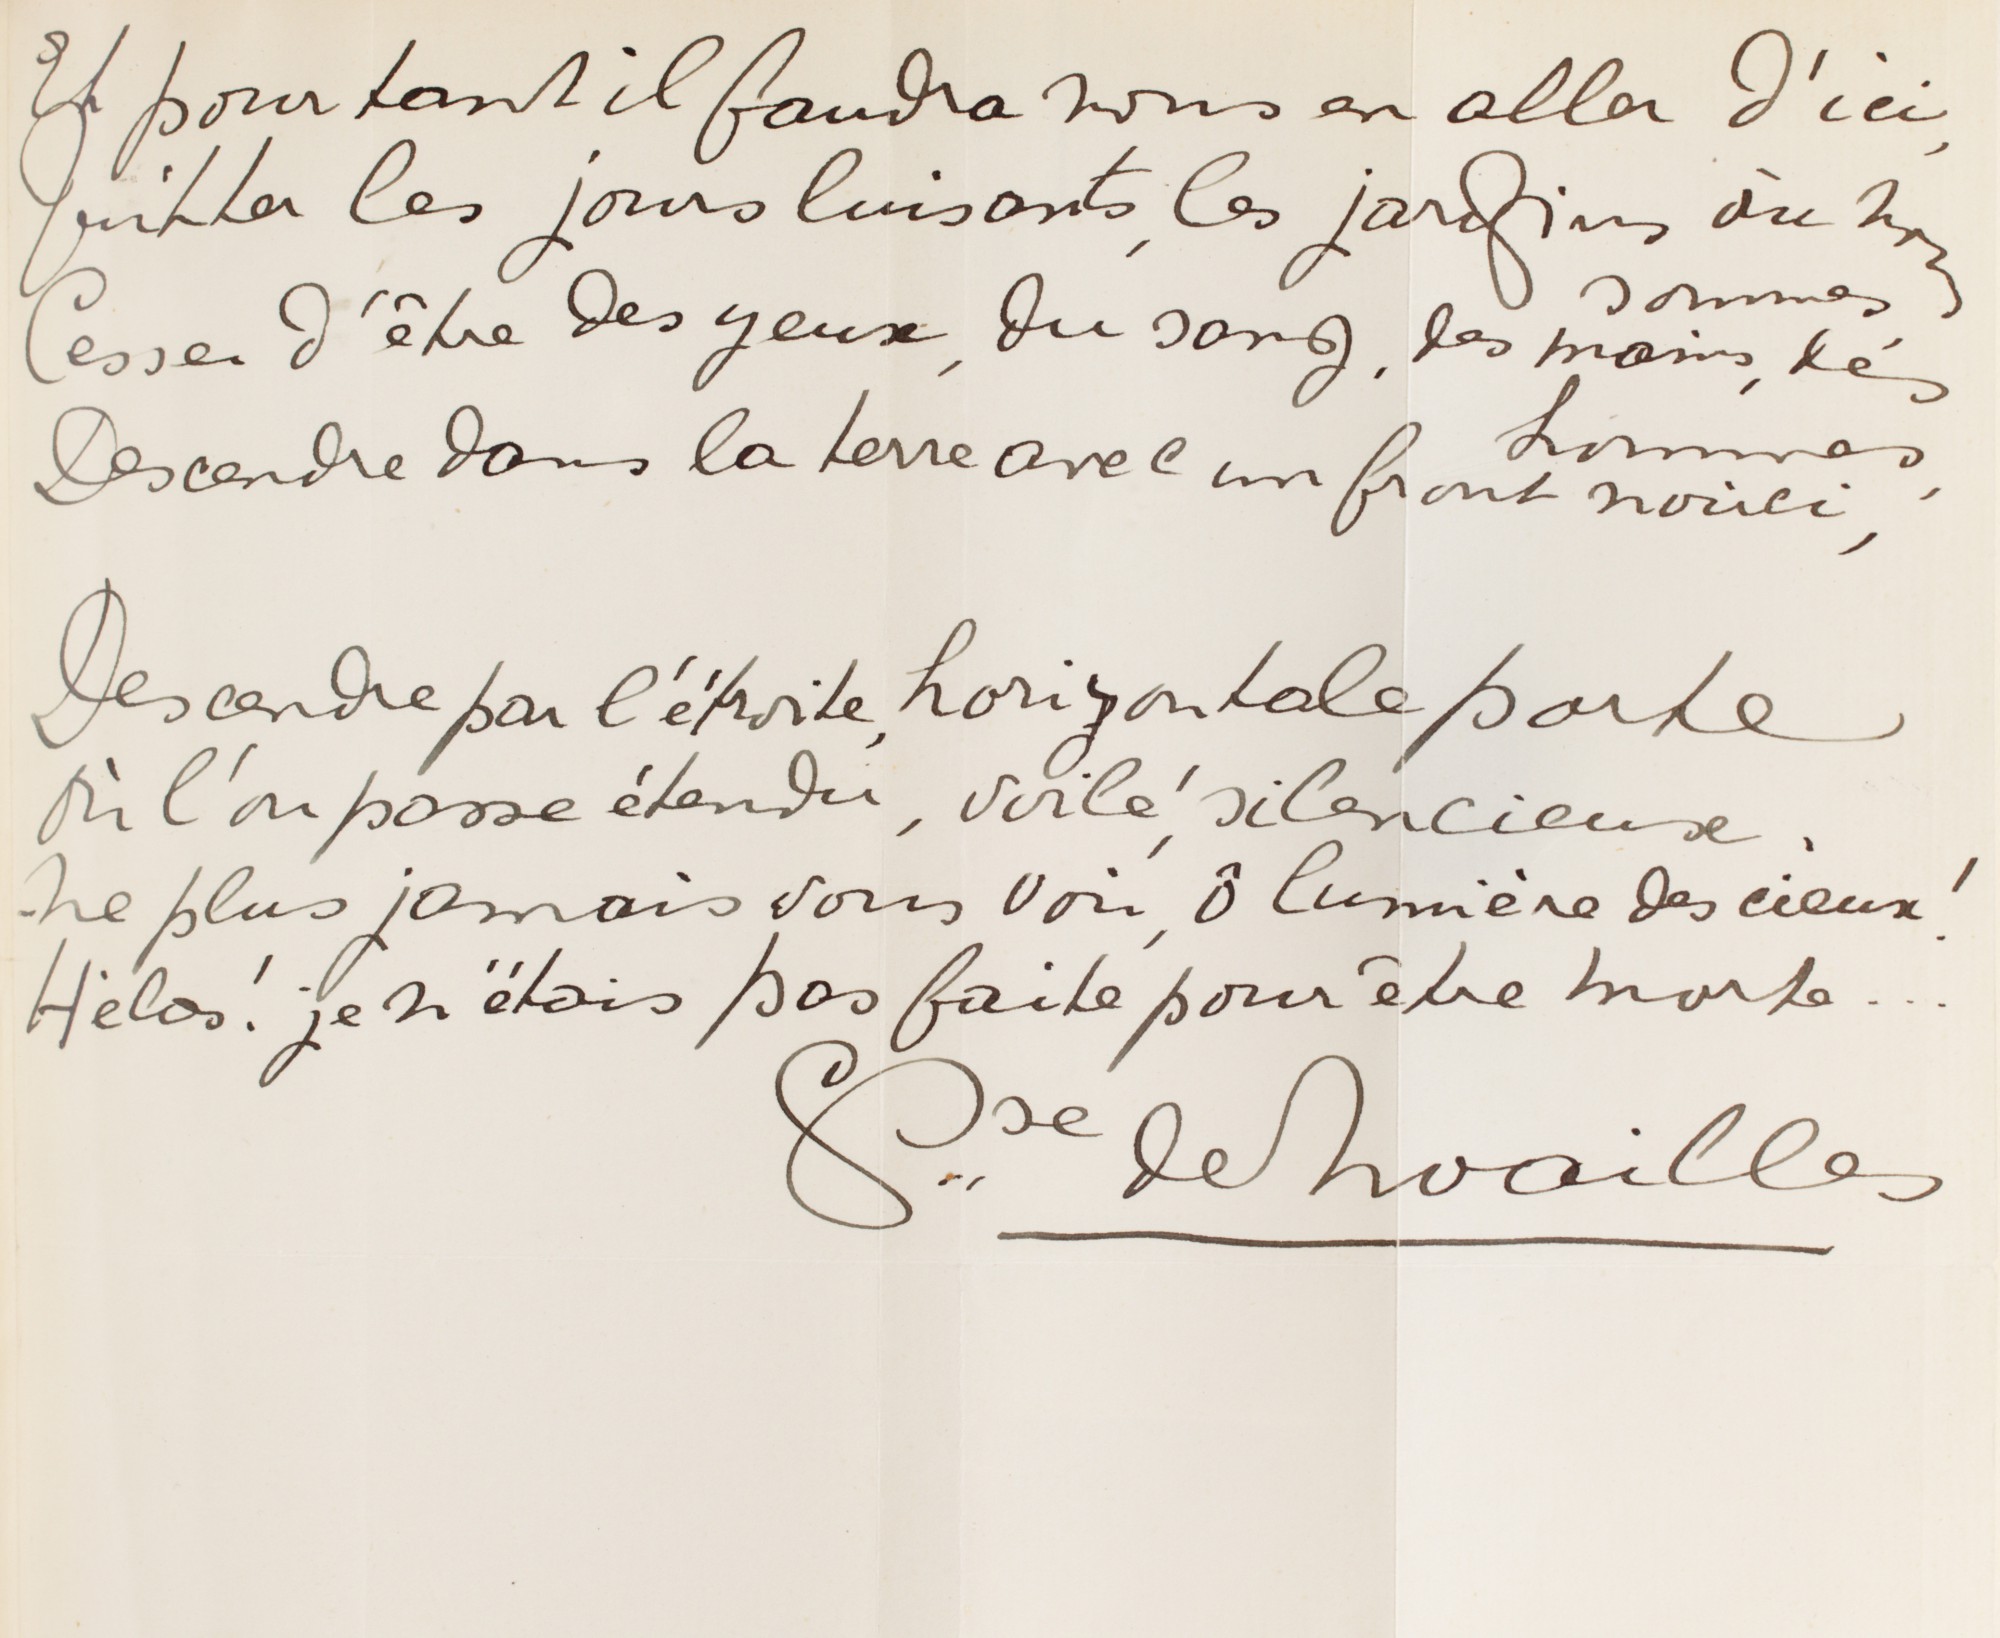 Et pourtant il faudra nous en aller d'ici,
Quitter les jours luisants, les jardins où nous
sommes,
Cesser d'être des yeux, du sang, des mains, des
hommes,
Descendre dans la terre avec un front noirci,
Descendre par l'étroite, horizontale porte
Où l'on passe étendu, voilé, silencieux,
Ne plus jamais vous voir, ô lumière des cieux!
Hélas! je n'étais pas faite pour être morte...
Csse de Noailles